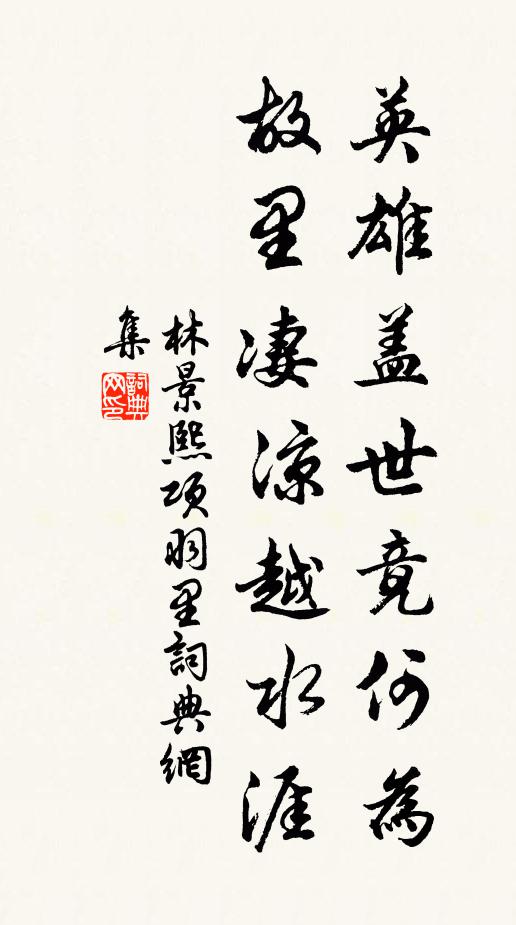 英雄盖世竟何為
故里淒涼越水涯
林景熙項羽里詞典網
集
詞典网印